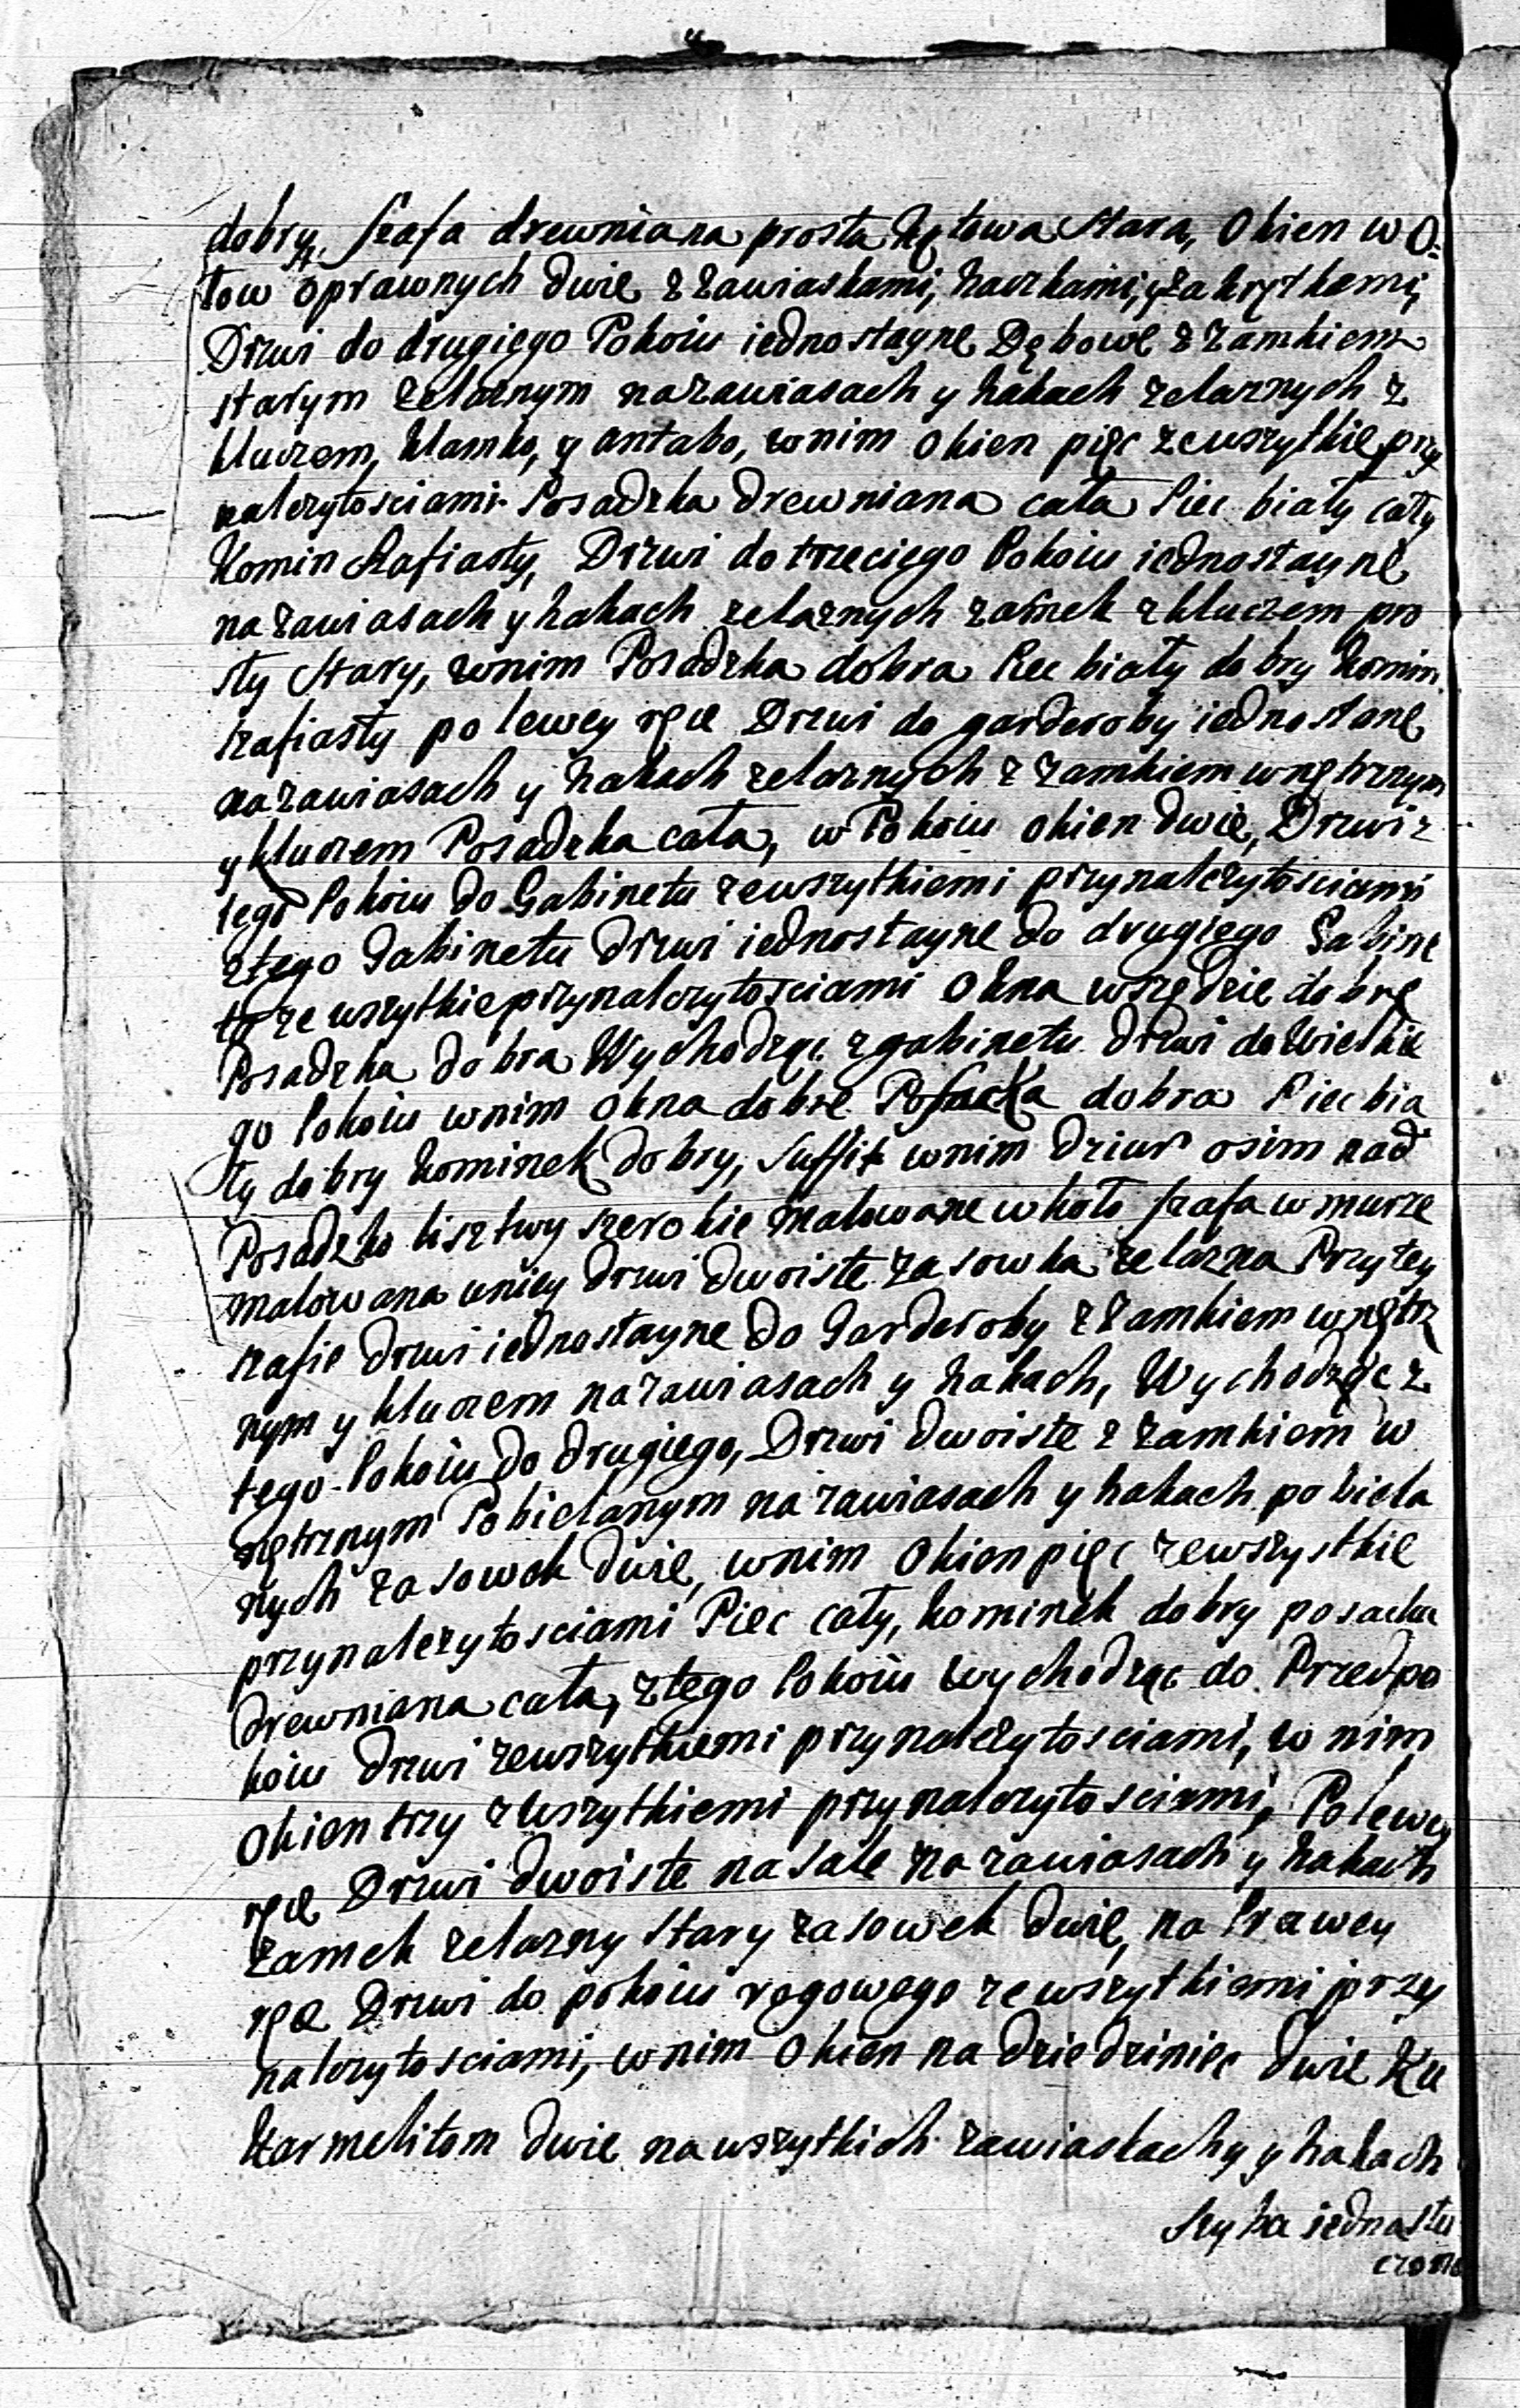 dobry, szafa drewniana prosta kątowa stara, Okien w O=
łow oprawnych dwie z zawiaskami, haczkami, y zakrętkami,
Drzwi do drugiego Pokoiu iednostayne Dębowe z zamkiem
starym żelaznym na zawiasach y hakach żelaznych z
kluczem, klamką, y antabą, w nim Okien pięc ze wszytkie przy
należytosciami Posadzka drewniana cała Piec biały cały
Komin szafiasty, Drzwi do trzeciego Pokoiu iednostayne
na zawiasach y hakach żelaznych zamek z kluczem pro
sty stary, w nim Posadzka dobra Piec biały dobry Komin
szafiasty po lewey ręce Drzwi do garderoby iednostane
na zawiasach y hakach żelaznych z zamkiem wnętrznym
y kluczem Posadzka cała, w Pokoiu okien dwie, Drzwi z
tego Pokoiu do Gabinetu ze wszytkiemi przynależytosciami
z tego Gabinetu drzwi iednostayne do drugiego Gabine
tu ze wszytkie przynależytosciami Okna wszędzie dobre
Posadzka dobra Wychodząc z gabinetu drzwi do Wielkie
go Pokoiu w nim okna dobre Posacka dobra Piec bia
ły dobry kominek dobry, suffit w nim dziur osim nad
Posadzką lisztwy szerokie malowane w koło szafa w murze
malowana u niey drzwi dwoiste zasowka żelazna Przy tey
szafie drzwi iednostayne do Garderoby z zamkiem wnętrz
nym y kluczem na zawiasach y hakach, Wychodząc z
tego Pokoiu do drugiego, Drzwi dwoiste z zamkiem w
nętrznym Pobielanym na zawiasach y hakach pobiela
nych zasowek dwie, w nim Okien pięc ze wszystkie
przynależytosciami Piec cały, kominek dobry posacka
drewniana cała, z tego Pokoiu wychodząc do Przedpo
koiu drzwi ze wszytkiemi przynależytosciami, w nim
Okien trzy z wszytkiemi przynależytosciami, Po lewey
ręce Drzwi dwoiste na sale na zawiasach y hakach
zamek żelazny stary zasowek dwie, na Prawey
ręce Drzwi do pokoiu rogowego ze wszytkiemi przy
należytosciami, w nim Okien na dziedziniec dwie Ku
Karmelitom dwie na wszytkich zawiaskachy y hakach
Szyba iedna stu
czona